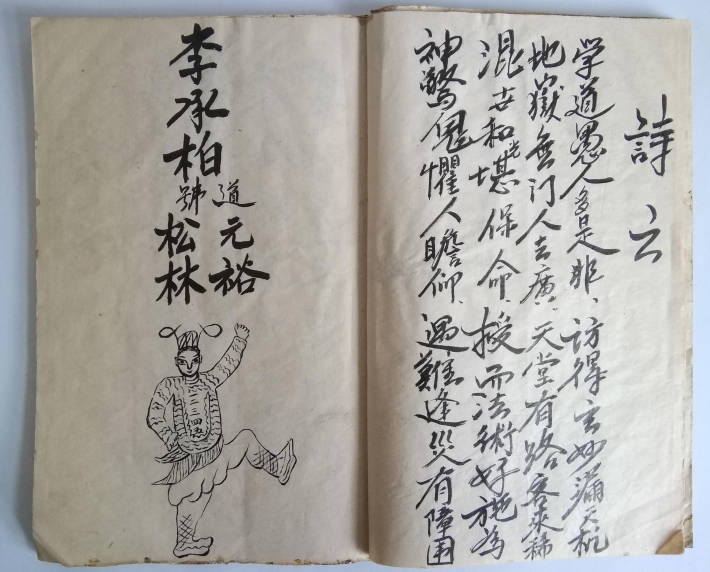 詩云
学道愚人多是非、访得玄妙滿天机
地獄無门人去廣、天堂有路客來稀
混世和光堪保命、授而法術好施為
神驚鬼懼人瞻仰、遇難逢災有障
李承柏
道元裕
號松林